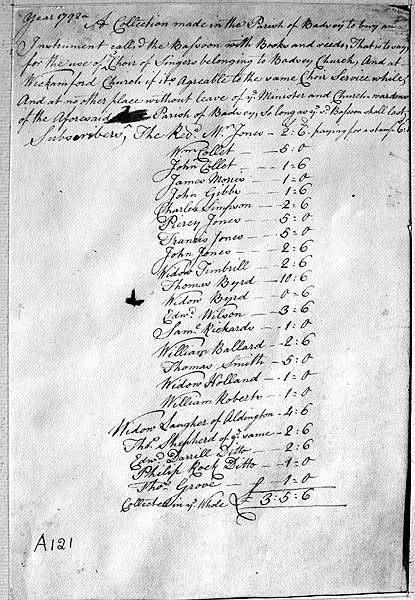 Year 1792
A Collection made in the Parish of Badsey to buy an
Instrument called the Bassoon with Books and reeds, That is to say
for the use of yᵉ Choir of Singers belonging to Badsey Church, And at
Wickamford Church if it's Agreable to the same Choir Service while,
And at no other place without leave of yᵉ Minister and Church-wardens
of the Aforesaid Parish of Badsey, So long as yᵉ sᵈ Bassoon shall last,
Subscribers, The Revᵈ Mʳ Jones - 2=6, paying for a stamp 6ᵈ
Wᵐ Collet - 5=0
John Collet - 1=6
James Morris - 1=0
John Gibbs - 1=6
Charles Simpson - 2=6
Piercy Jones - 5=0
Francis Jones - 5=0
John Jones - 2=6
Widow Timbrill 2=6
Thomas Byrd - 10=6
Widow Byrd - 0=6
Edwᵈ Wilson - 3=6
Samˡ Rickards - 1=0
William Ballard - 2=6
Thomas Smith - 5=0
Widow Holland - 1=0
William Roberts - 1=0
Widow Laugher of Aldington - 4=6
Thoˢ Shepherd of yᵉ same - 2=6
Edwᵈ Darrell Ditto - 2=6
Philip Rock Ditto - 1=0
Thoˢ Grove - 1=0
Collected in yᵉ Whole £ 3=5=6
A121